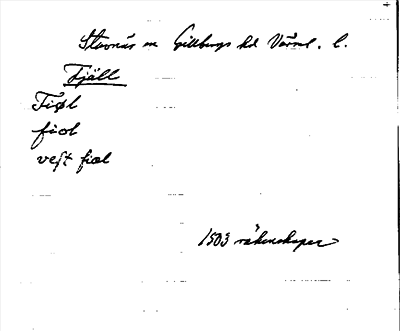 Stavnäs sn Gillbergs hd Värml. l.
Fjäll
Fiøl
fiol
vest fiæl
1503 räkenskaper